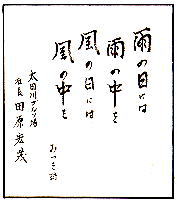 雨の日には
雨の中を
風の日には
風の中を
みつを
太田川ゴルフ場
社長 田原宏茂